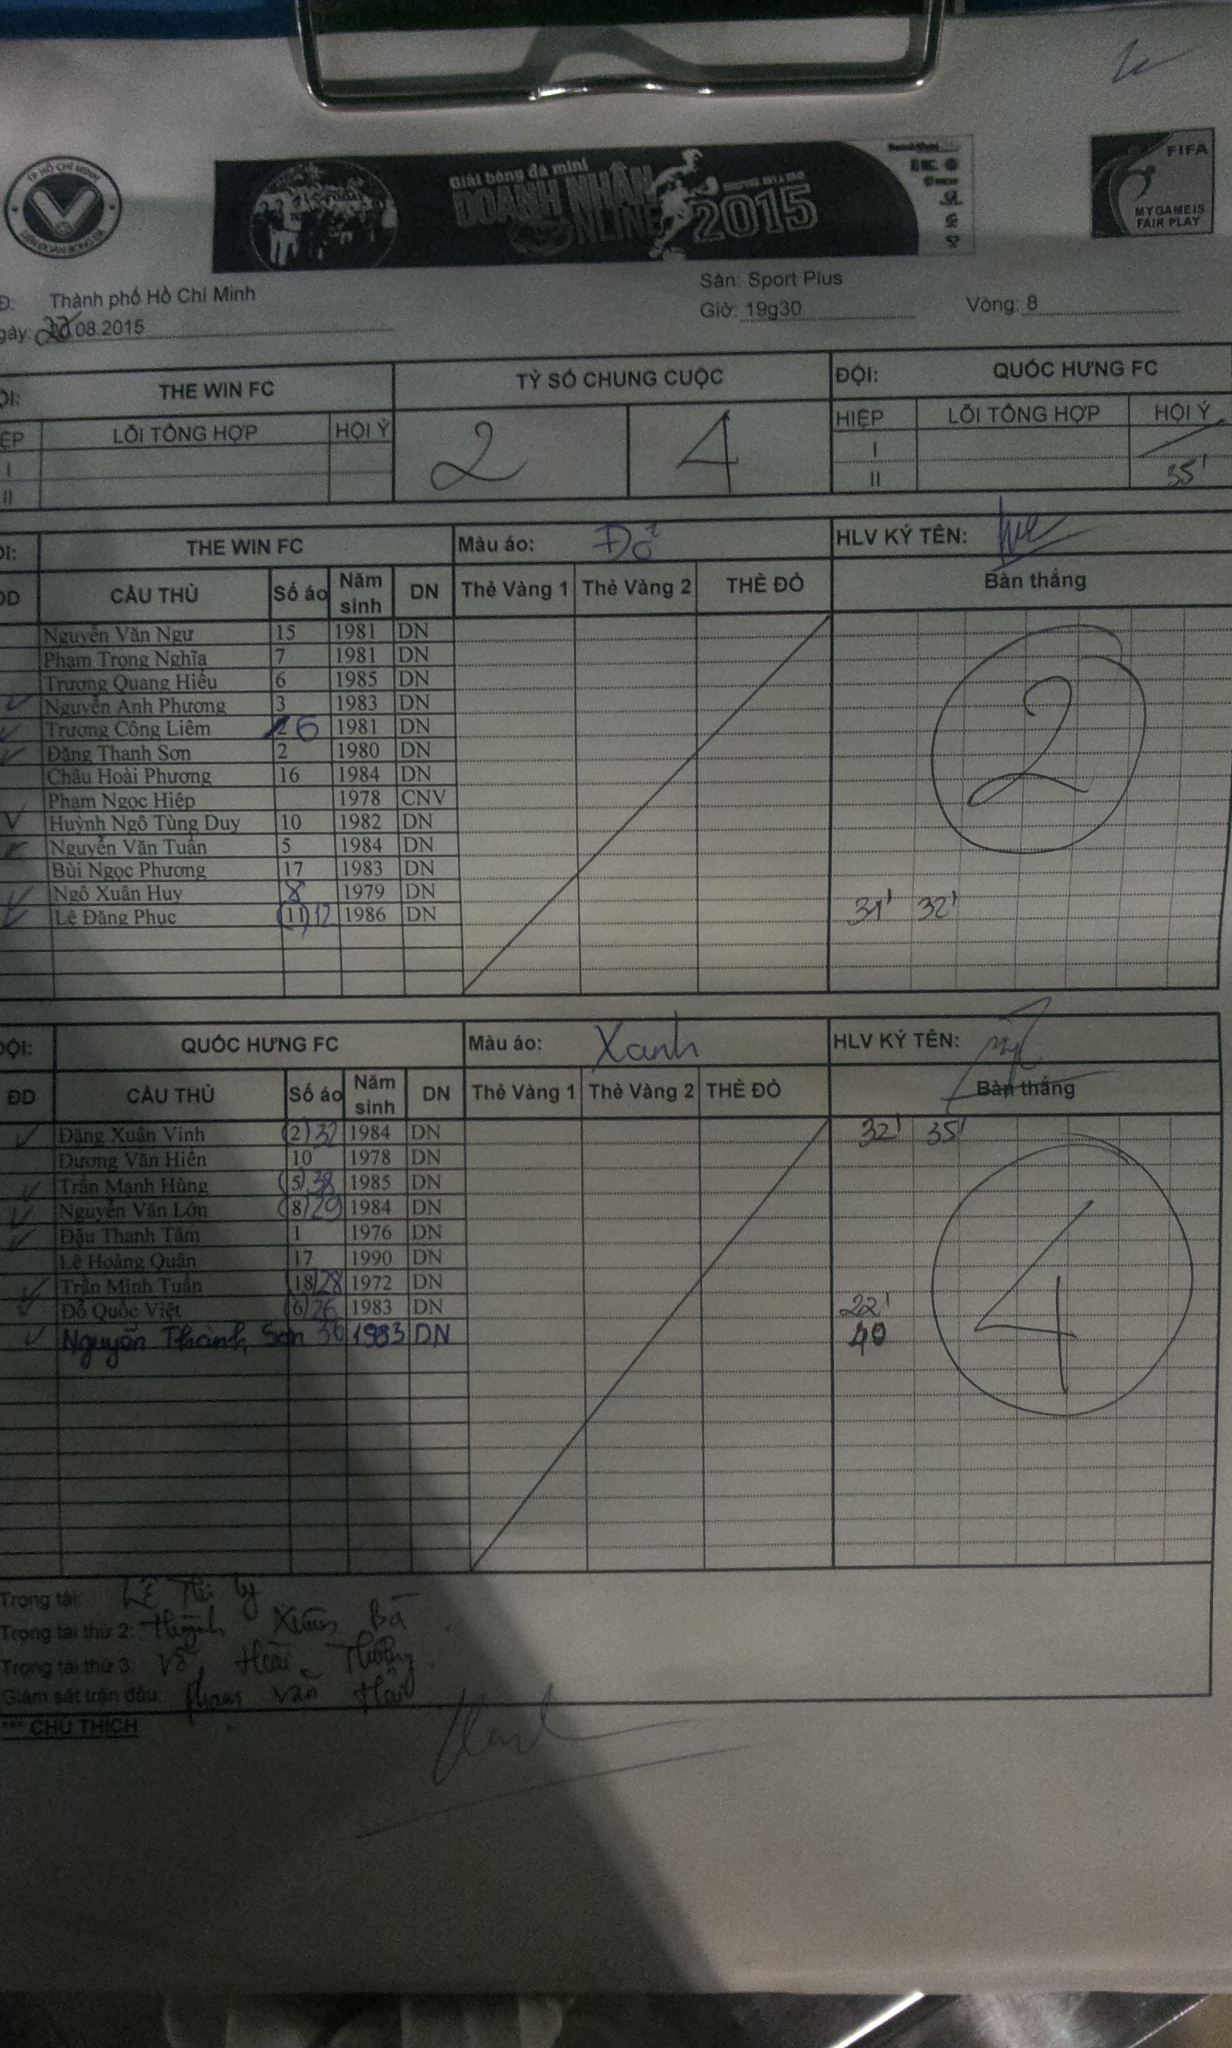 TP HỒ CHÍ MINH
LIÊN ĐOÀN BÓNG ĐÁ
Giải bóng đá mini
DOANH NHÂN
ONLINE 2015
FIFA
MY GAME IS
FAIR PLAY
Đ: Thành phố Hồ Chí Minh
Sân: Sport Plus
gày 08.2015
Giờ: 19g30 Vòng: 8
ỘI: THE WIN FC TỶ SỐ CHUNG CUỘC ĐỘI: QUỐC HƯNG FC
IỆP LỖI TỔNG HỢP HỘI Ý 2 4 HIỆP LỖI TỔNG HỢP HỘI Ý
I I
II II 35'
ỘI: THE WIN FC Màu áo: Đỏ HLV KÝ TÊN:
ĐD CẦU THỦ Số áo Năm sinh DN Thẻ Vàng 1 Thẻ Vàng 2 THẺ ĐỎ Bàn thắng
Nguyễn Văn Ngư 15 1981 DN
Phạm Trọng Nghĩa 7 1981 DN
Trương Quang Hiếu 6 1985 DN
Nguyễn Anh Phương 3 1983 DN
Trương Công Liêm 6 1981 DN
Đặng Thanh Sơn 2 1980 DN
Châu Hoài Phương 16 1984 DN
2
Phạm Ngọc Hiệp 1978 CNV
Huỳnh Ngô Tùng Duy 10 1982 DN
Nguyễn Văn Tuấn 5 1984 DN
Bùi Ngọc Phương 17 1983 DN
Ngô Xuân Huy 8 1979 DN
Lê Đăng Phục (11) 12 1986 DN 31' 32'
ĐỘI: QUỐC HƯNG FC Màu áo: Xanh HLV KÝ TÊN:
ĐD CẦU THỦ Số áo Năm sinh DN Thẻ Vàng 1 Thẻ Vàng 2 THẺ ĐỎ Bàn thắng
Đặng Xuân Vinh (2) 32 1984 DN 32' 35'
Dương Văn Hiên 10 1978 DN
Trần Mạnh Hùng (5) 38 1985 DN
Nguyễn Văn Lớn (8) 29 1984 DN
Đậu Thanh Tâm 1 1976 DN
Lê Hoàng Quân 17 1990 DN
4
Trần Minh Tuấn (18) 28 1972 DN
Đỗ Quốc Việt (6) 26 1983 DN 22'
Nguyễn Thành Sơn 36 1983 DN 40
Trọng tài: Lê Thi Ly
Trọng tài thứ 2: Huỳnh Xuân Bá
Trọng tài thứ 3: Võ Hoài Thương
Giám sát trận đấu: Phạm Văn Hải
*** CHÚ THÍCH